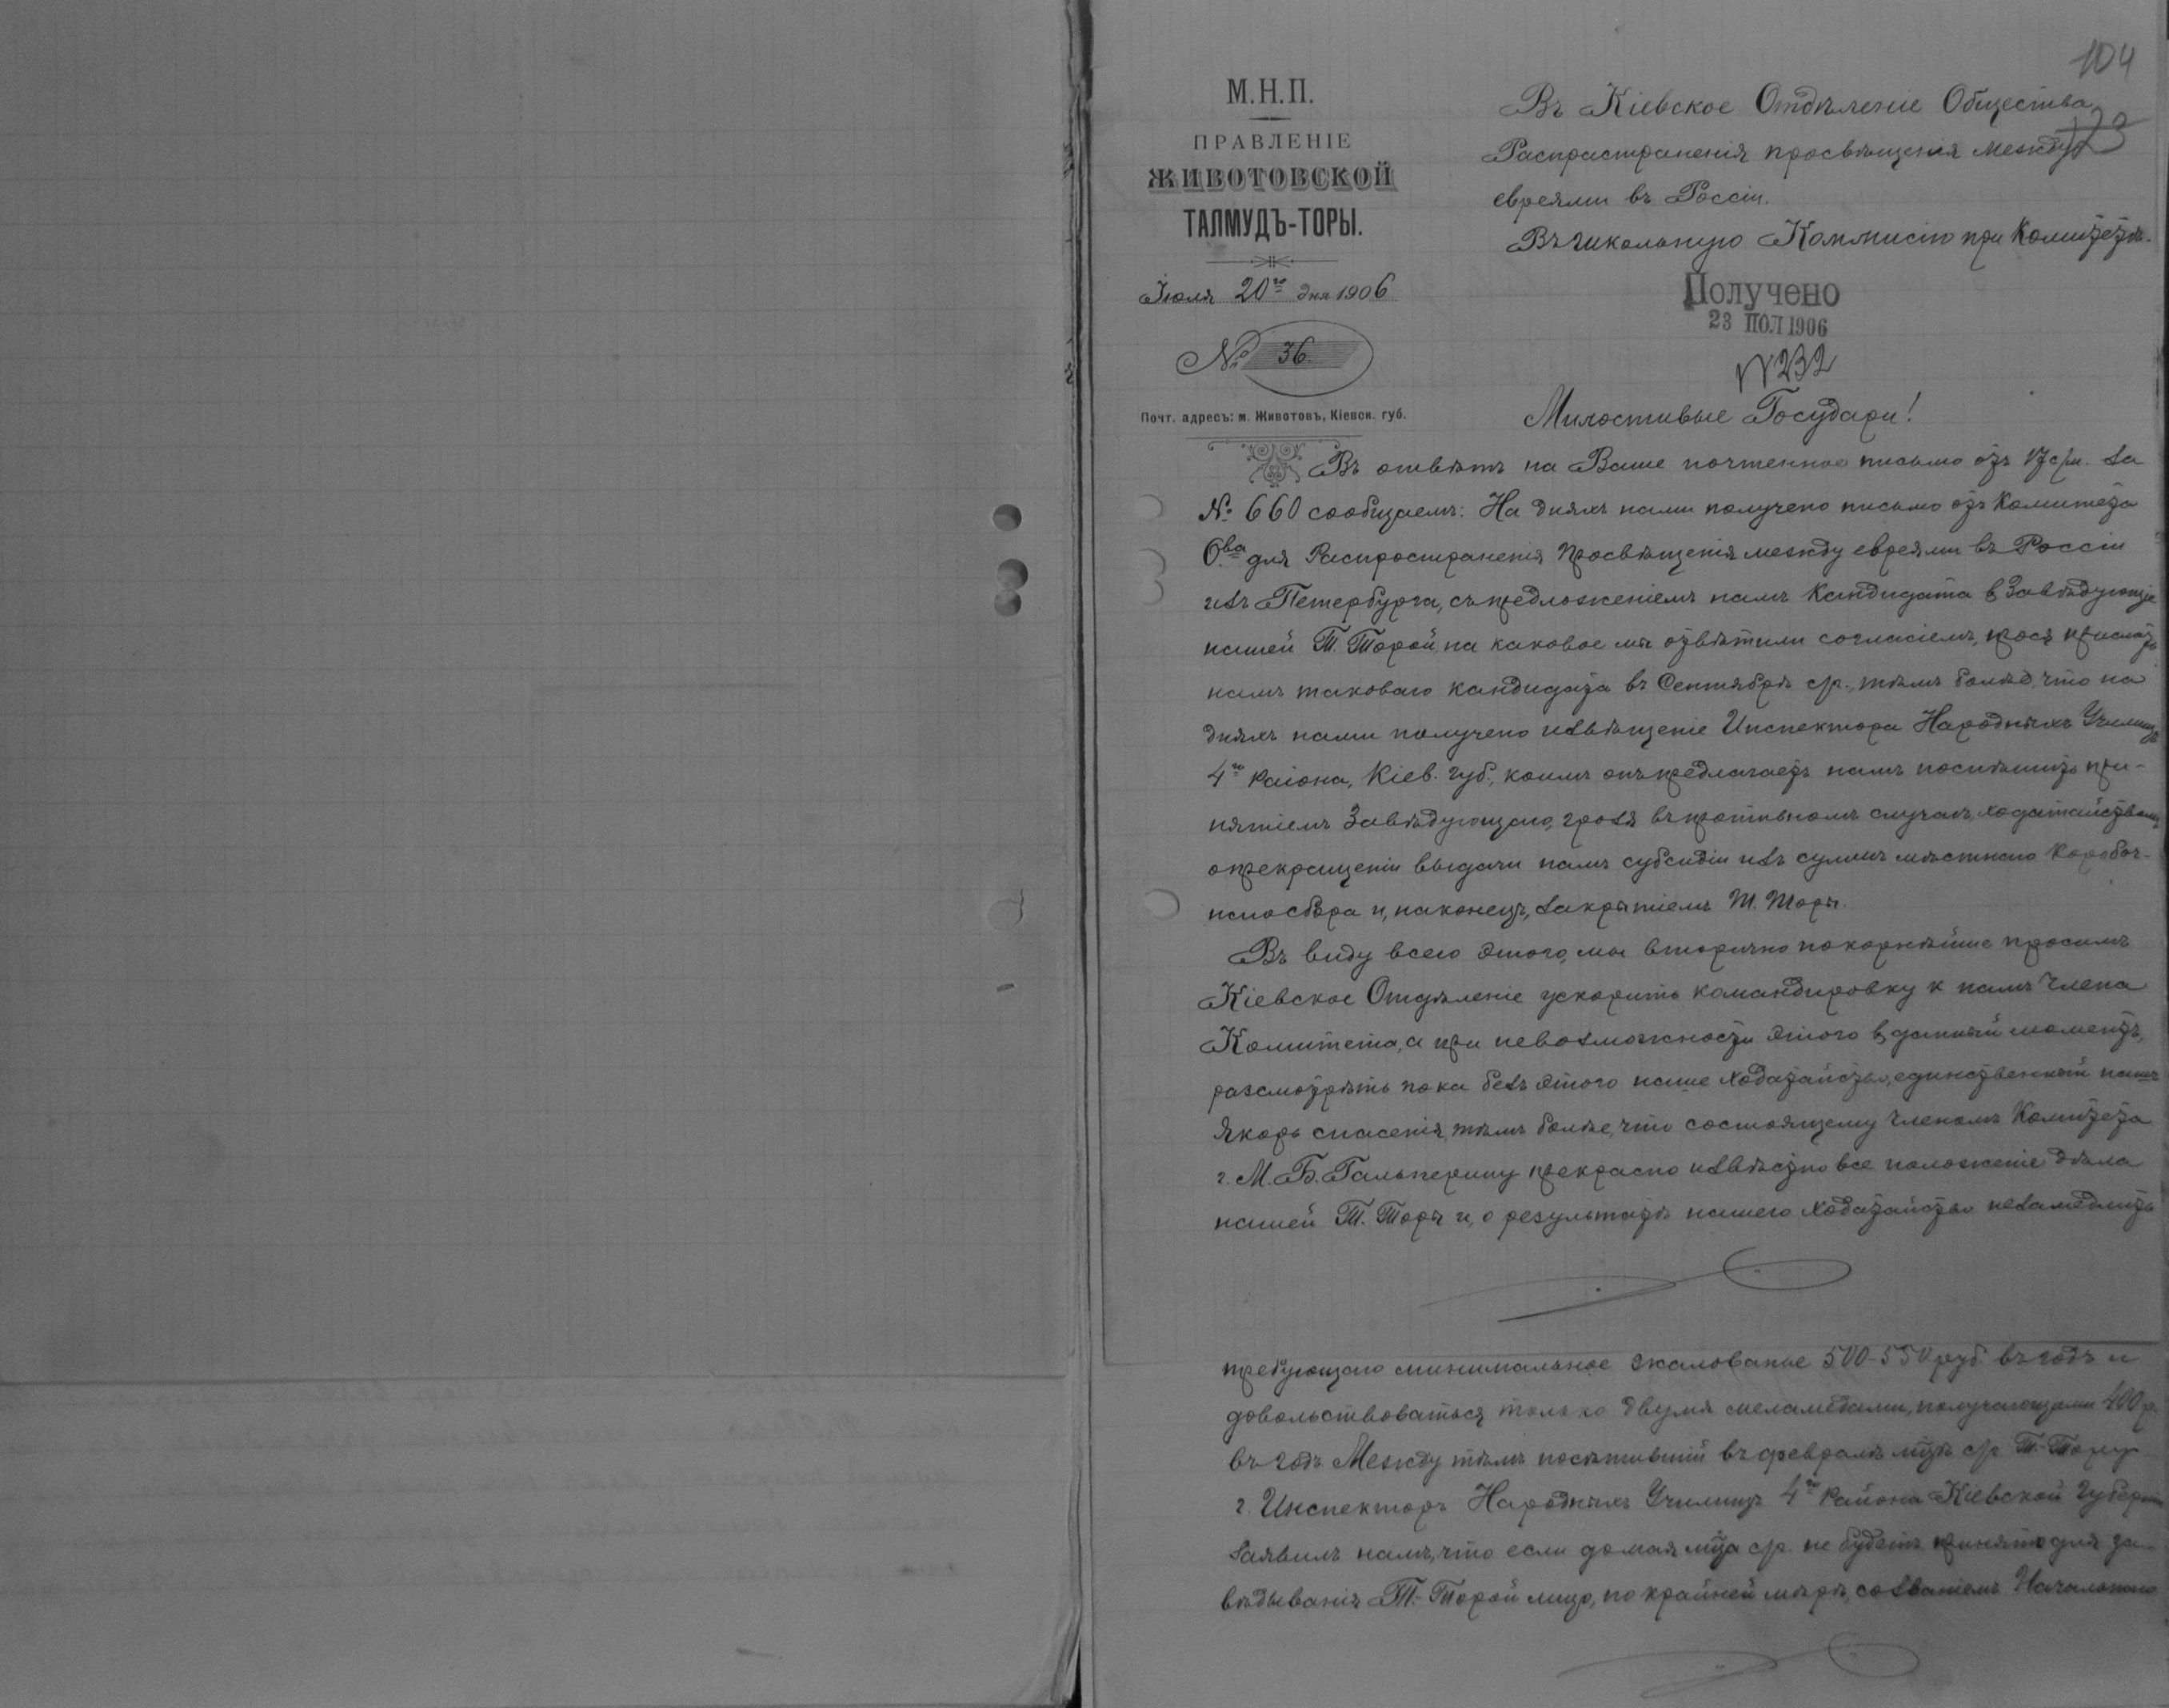 104
М.Н.П.
ПРАВЛЕНІЕ
ЖИВОТОВСКОЙ
ТАЛМУДЪ-ТОРЫ.
Іюля 20го дня 1906
№ 36
Почт. адресъ: м. Животовъ, Кіевск. губ.
Въ Кіевское Отдѣленіе Общества
Распрастраненія просвѣщенія между
123
евреями въ Россіи.
Въ школьную Коммисію при Комитетѣ.
Получено
23 ІЮЛ 1906
№232
Милостивые Государи!
Въ отвѣтъ на Ваше почтенное письмо отъ 17 с/м. за
№ 660 сообщаемъ: На дняхъ нами получено письмо отъ Комитета
О-ва для Распространенія Просвѣщенія между евреями въ Россіи
изъ Петербурга, съ предложеніемъ намъ Кандидата в Завѣдующіе
нашей Т. Торой, на каковое мы отвѣтили согласіемъ, прося прислать
намъ таковаго кандидата въ Сентябрѣ с/г., тѣмъ болѣе, что на
дняхъ нами получено извѣщеніе Инспектора Народныхъ Училищъ
4го Раіона, Кіев. губ., коимъ онъ предлагаетъ намъ поспѣшить при-
нятіемъ Завѣдующаго, грозя въ противномъ случаѣ, ходатайствомъ
о прекращеніи выдачи намъ субсидіи изъ суммъ мѣстнаго Коробоч-
наго сбора и, наконецъ, закрытіемъ Т. Торы.
Въ виду всего этого, мы вторично покорнѣйше просимъ
Кіевское Отдѣленіе ускорить командировку к намъ Члена
Комитета, а при невозможности этого в данный моментъ,
разсмотрѣть пока безъ этого наше ходатайство, единственный нашъ
якорь спасенія, тѣмъ болѣе, что состоящему Членомъ Комитета
г. М. Б. Гальперину прекрасно извѣстно все положеніе дѣла
нашей Т. Торы и, о результатѣ нашего ходатайства незамедлить
требующаго минимальное жалованье 500-550 руб. въ годъ и
довольствоваться только двумя меламедами, получающими 400 р.
въ годъ. Между тѣмъ посѣтившій въ февралѣ мцѣ с/г. Т.-Тору
г. Инспекторъ Народныхъ Училищъ 4го Района Кіевской Губерніи
заявилъ намъ, что если до мая мца с/г. не будетъ принято для за-
вѣдыванія Т.-Торой лицо, по крайней мѣрѣ, со званіемъ Начальнаго